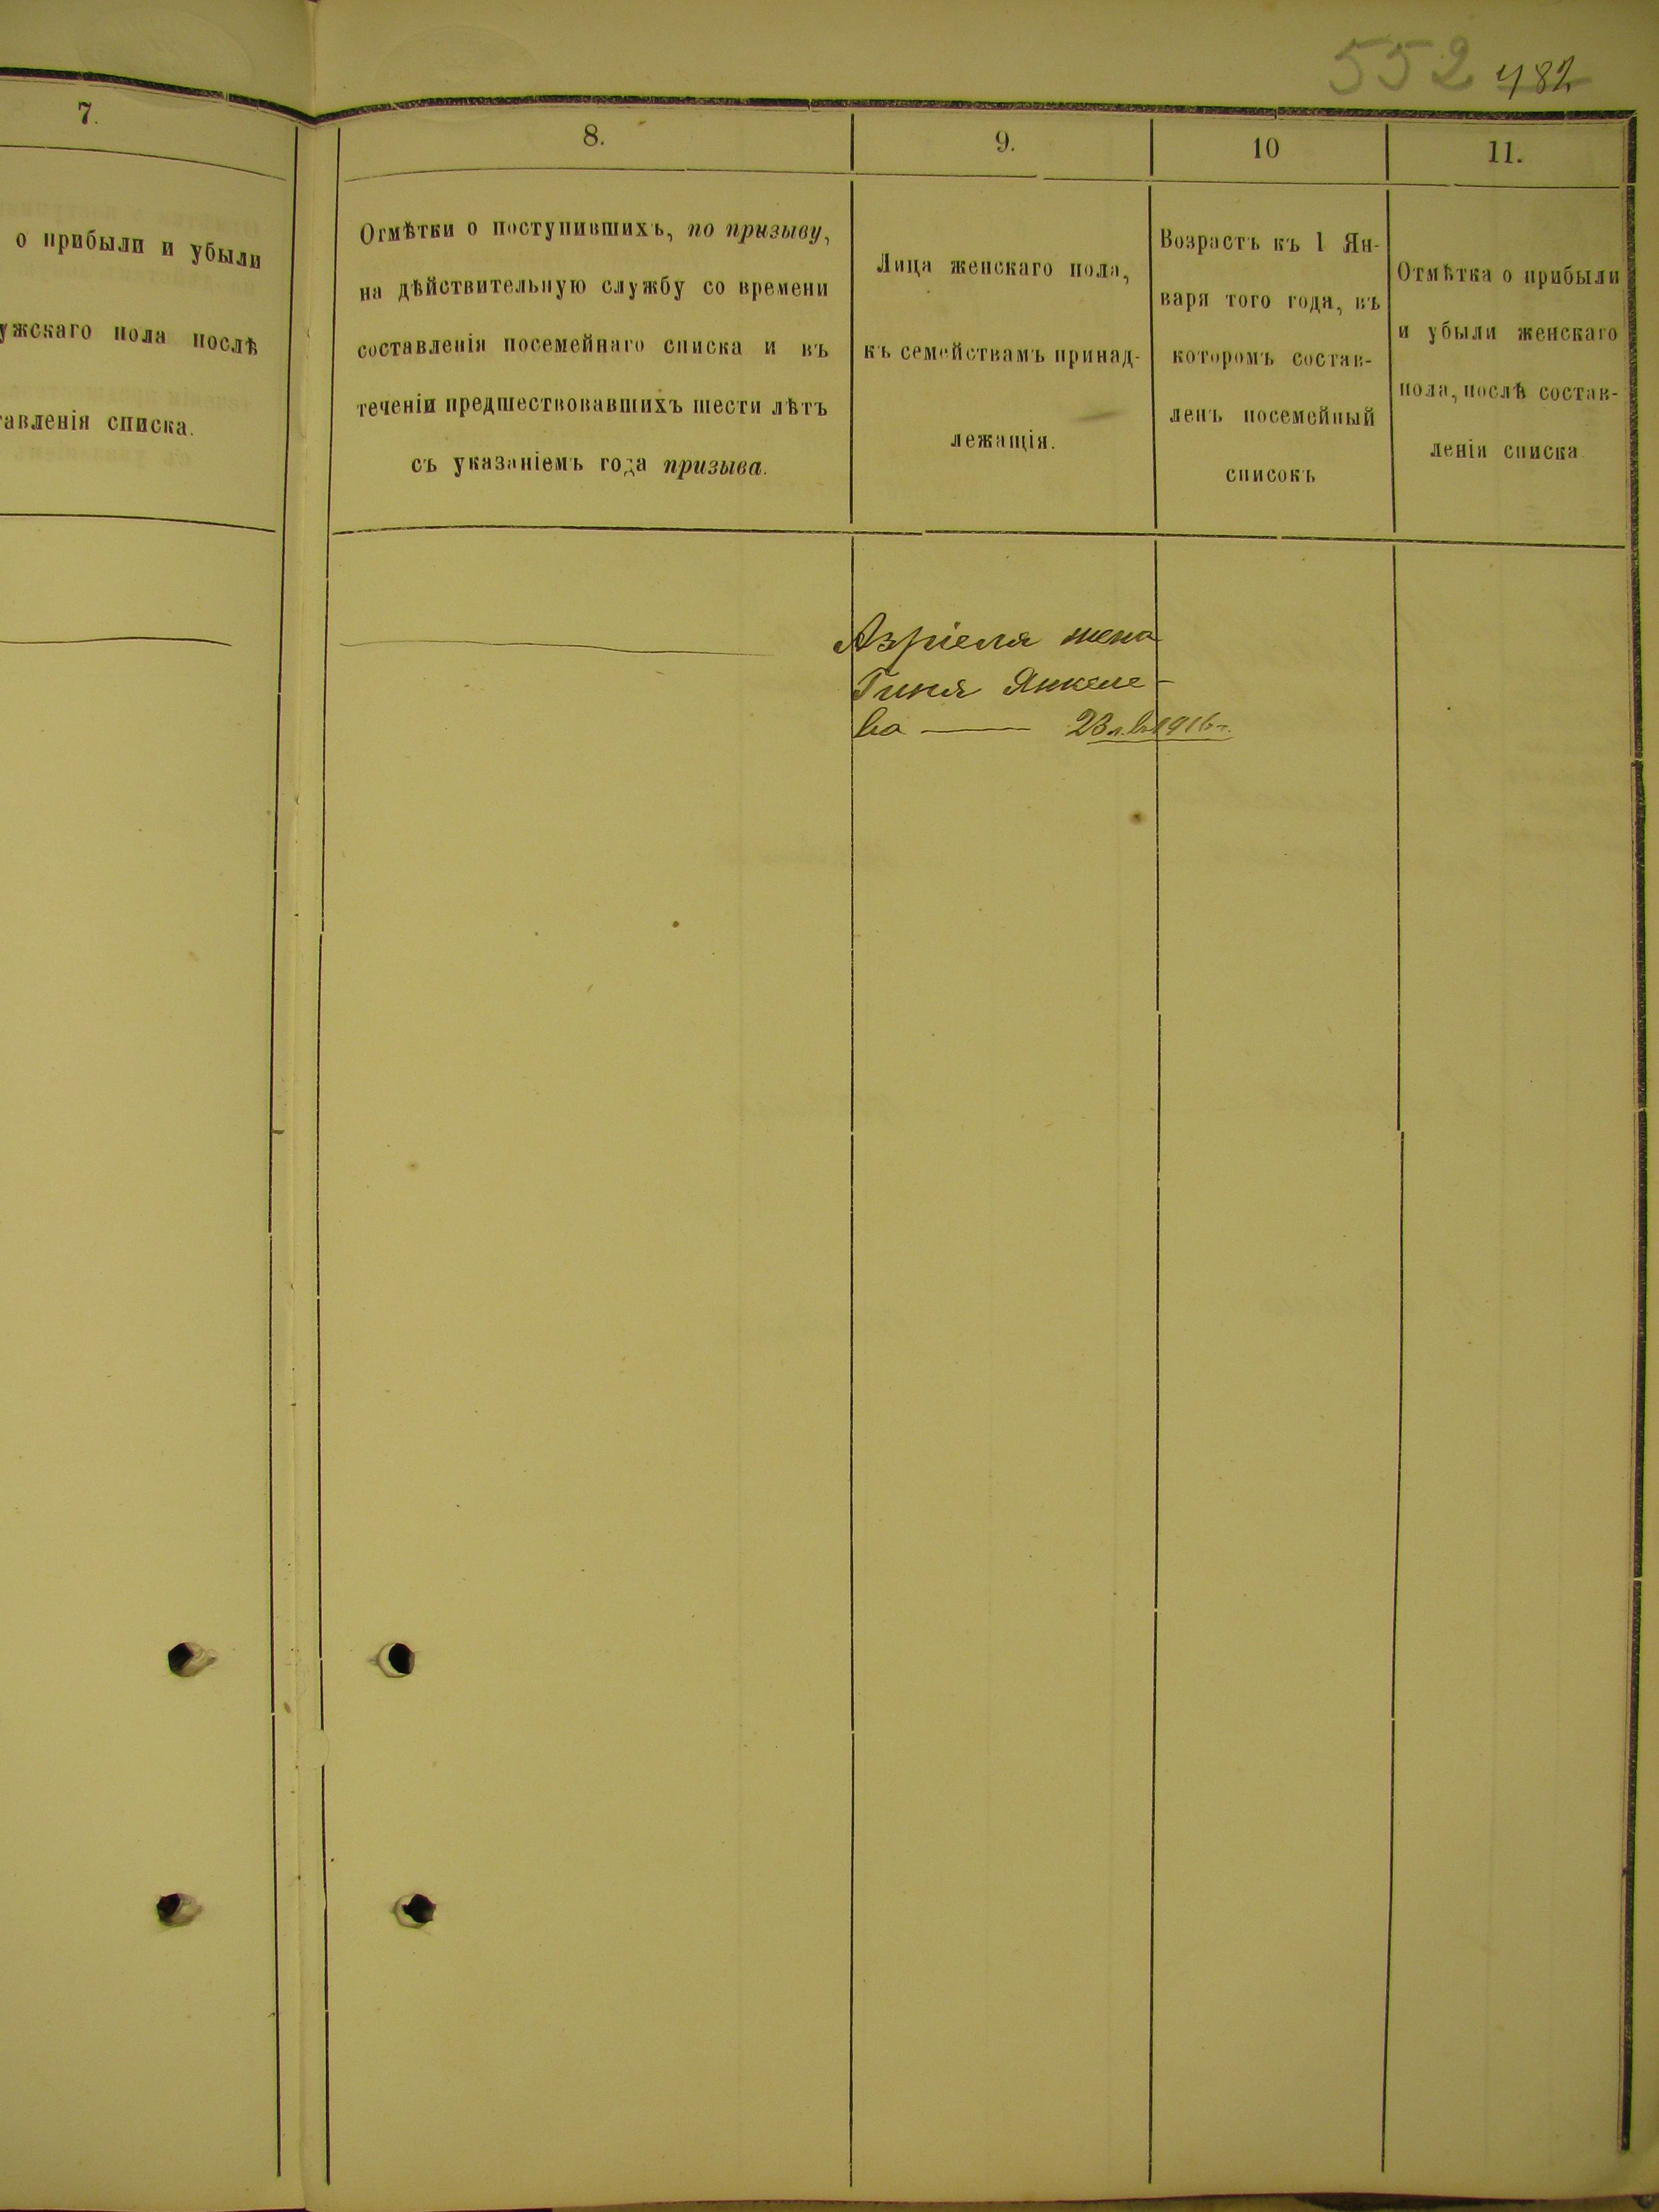 552 482
7.
о прибыли и убыли
ужскаго пола послѣ
тавленія списка.
8.
Отмѣтки о поступившихъ, по призыву,
на дѣйствительную службу со времени
составленія посемейнаго списка и въ
теченіи предшествовавшихъ шести лѣтъ
съ указаніемъ года призыва.
9.
Лица женскаго пола,
къ семействамъ принад-
лежащія.
10
Возрастъ къ 1 Ян-
варя того года, въ
которомъ состав-
ленъ посемейный
списокъ
11.
Отмѣтка о прибыли
и убыли женскаго
пола, послѣ состав-
ленія списка
Азріеля жена
Гиня Янкеле-
ва — 23 л. в. 1916 г.